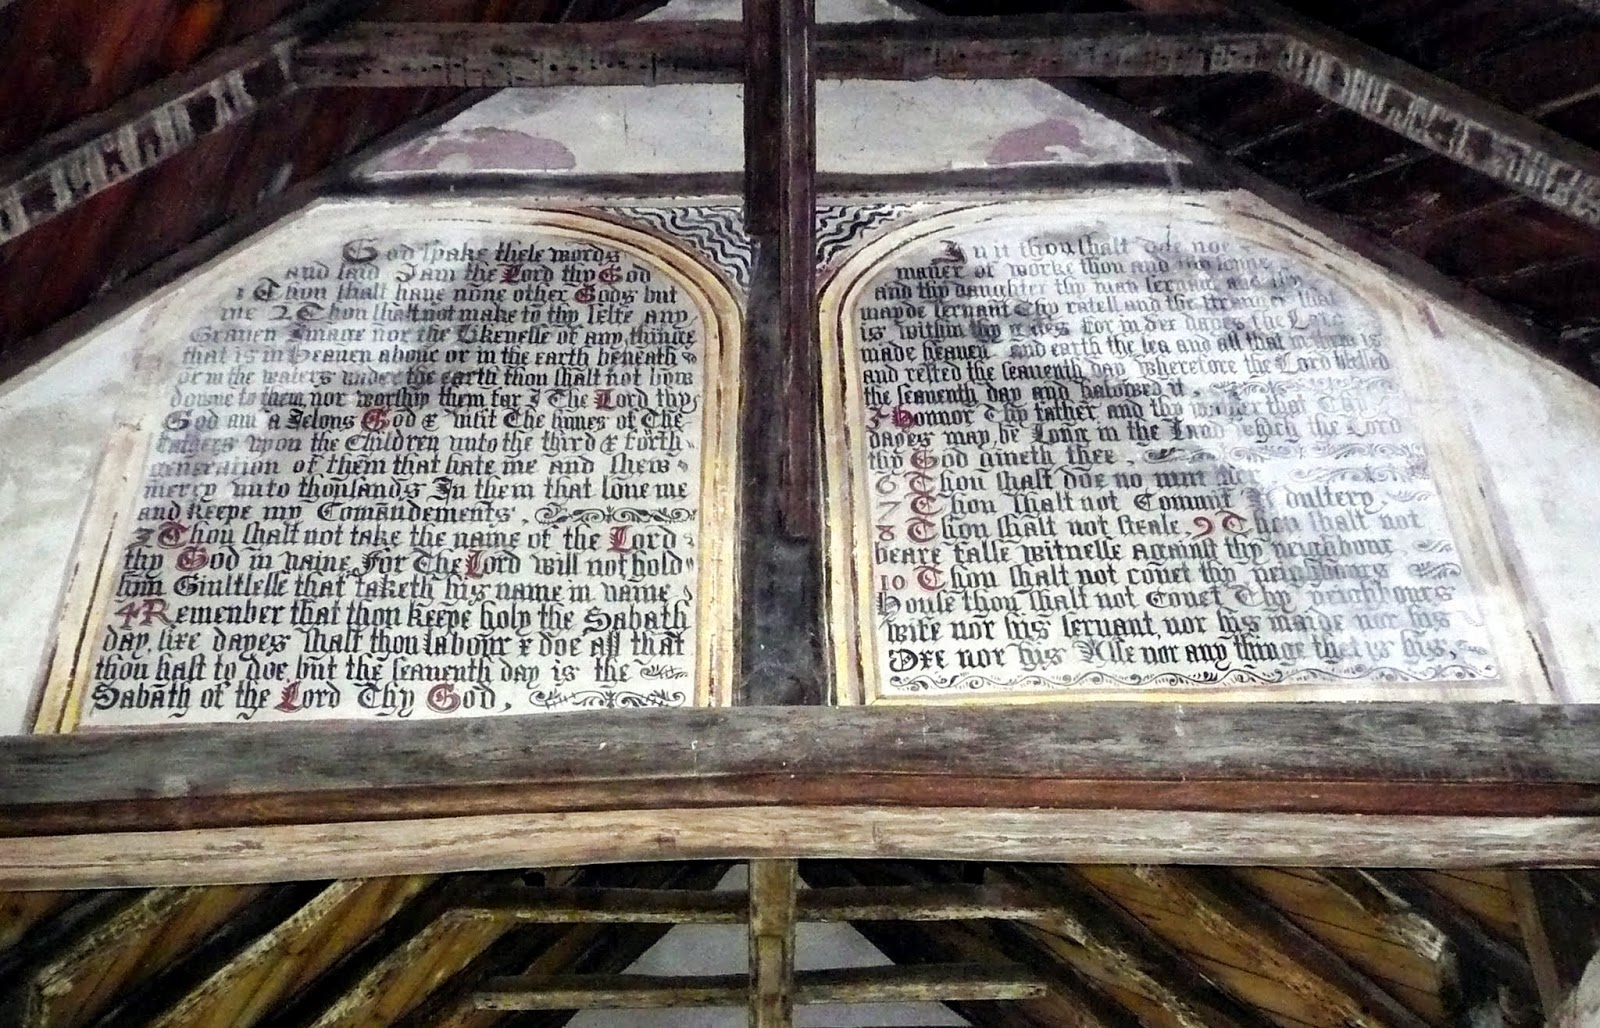 God spake these words
and said I am the Lord thy God
1 Thou shalt haue none other Gods but
me 2 Thou shalt not make to thy selfe any
Grauen Image nor the Likenesse of any thinge
that is in Heauen aboue or in the earth beneath
or in the waters under the earth thou shalt not bow
downe to them, nor worship them for I The Lord thy
God am a Jelous God & visit The sinnes of The
fathers vpon the Children vnto the third & forth
generation of them that hate me and shew
mercy vnto thousands In them that loue me
and keepe my Comaudements.
3 Thou shalt not take the name of the Lord
thy God in vaine For The Lord will not hold
him Giultlesse that taketh his name in vaine
4 Remember that thou keepe holy the Sabath
day, sixe dayes shalt thou labour & doe all that
thou hast to doe but the seauenth day is the
Sabath of the Lord Thy God.
In it thou shalt doe noe
maner of worke thou and
and thy daughter thy man seruant and thy
mayde seruant Thy catell and the stranger that
is within thy gates for in sixe dayes the Lord
made heauen and earth the sea and all that in them is
and rested the seauenth day wherefore the Lord blessed
the seauenth day and halowed it.
5 Honnor Thy father and thy mother that Thy
dayes may be Long in the Land which the Lord
thy God giueth thee.
6 Thou shalt doe no
7 Thou shalt not Commit Adultery.
8 Thou shalt not steale. 9 Thou shalt not
beare false witnesse against thy neighbour
10 Thou shalt not couet thy neighbours
house thou shalt not Couet Thy neighbours
wife nor his seruant, nor his maide nor his
Oxe nor his Asse nor any thinge that is his.